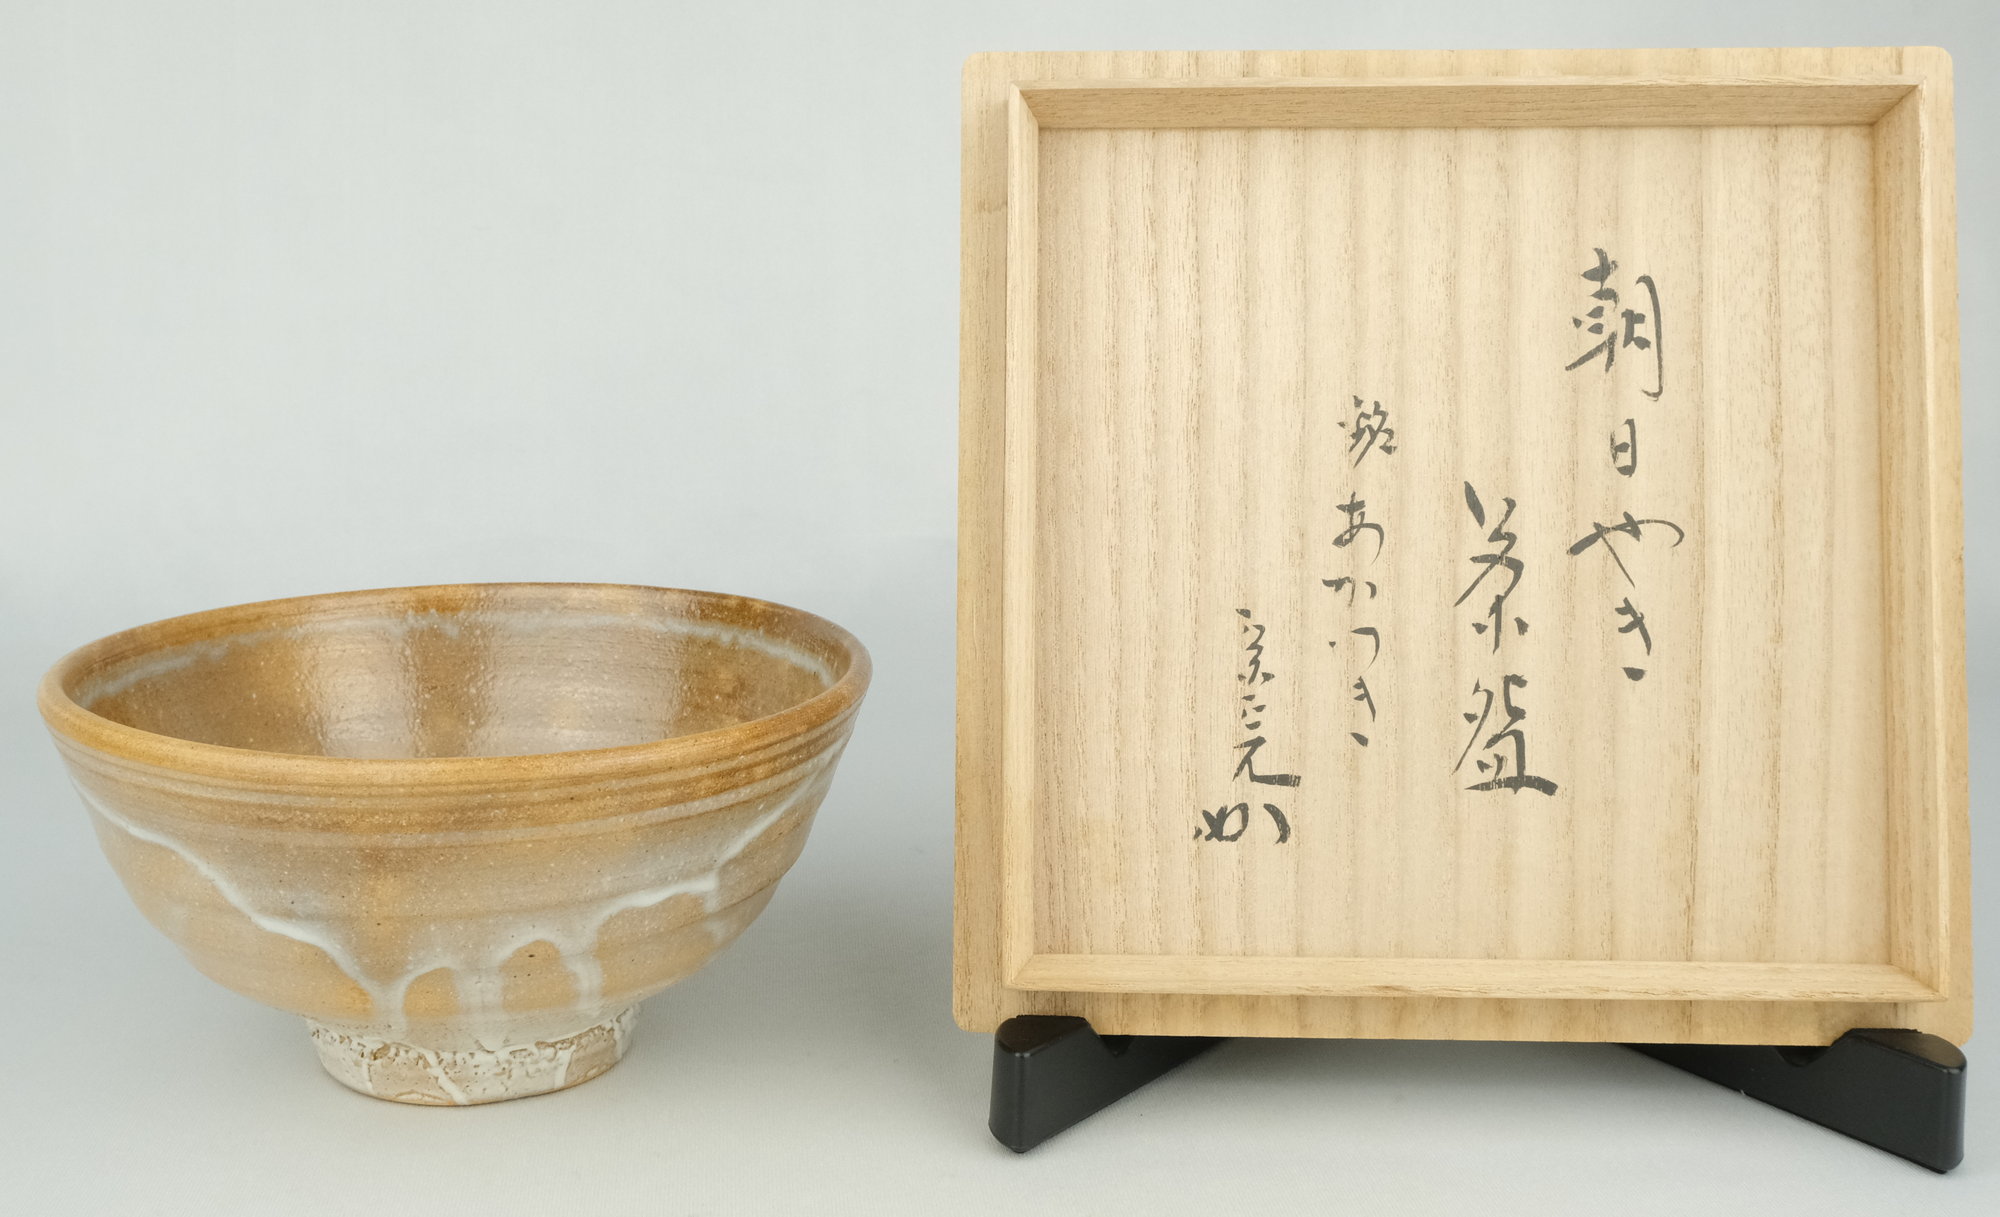 朝日やき
茶盌
銘 あかつき